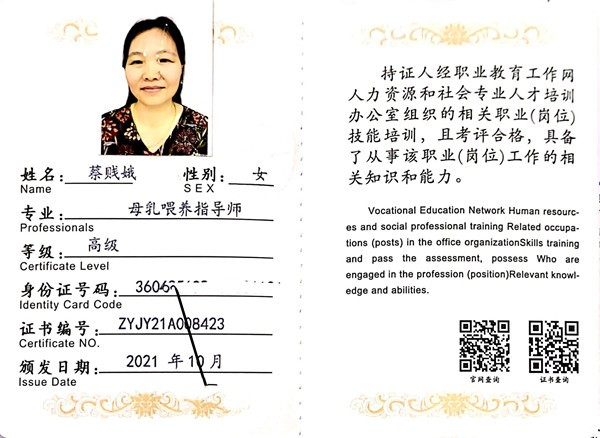 姓名: 蔡贱娥 性别: 女
Name SEX
专业: 母乳喂养指导师
Professionals
等级: 高级
Certificate Level
身份证号码:
Identity Card Code
证书编号: ZYJY21A008423
Certificate NO.
颁发日期: 2021 年 10 月
Issue Date
持证人经职业教育工作网
人力资源和社会专业人才培训
办公室组织的相关职业(岗位)
技能培训，且考评合格，具备
了从事该职业(岗位)工作的相
关知识和能力。
Vocational Education Network Human resourc-
es and social professional training Related occupa-
tions (posts) in the office organizationSkills training
and pass the assessment, possess Who are
engaged in the profession (position)Relevant knowl-
edge and abilities.
官网查询 证书查询